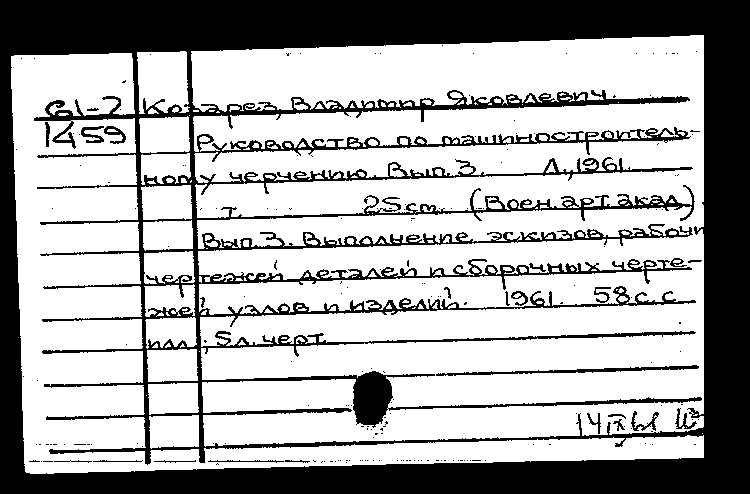 61-2 Козарез, Владимир Яковлевич.
1459 Руководство по машиностроитель-
ному черчению. Вып. 3. Л., 1961.
т. 25 см. (Воен. арт. акад.).
Вып. 3. Выполнение эскизов, рабочи
чертежей деталей и сборочных черте-
жей узлов и изделий. 1961. 58 с. с
илл.; 5 л. черт.
14 IX 61